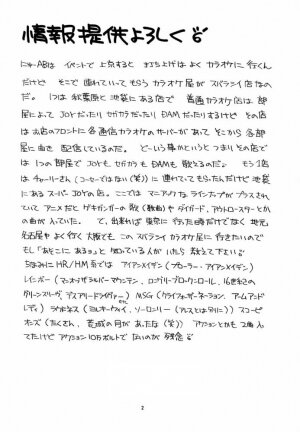 情報提供よろしくぞ
にゃーABIは イベントで上京すると まずうち上げは よく カラオケに行くん
だけど そこで 連れていってもらう カラオケ屋が スバラシイ店なの
だ。 1つは 秋葉原と 池袋にある店で 普通カラオケ店は 部
屋によって JOYだったり セガカラだったり DAMだったりするけど その店
はお店のフロントに 各通信カラオケのサーバーがあって そこから 各部
屋に曲を 配信しているのだ。 どーいう事かというと つまりその店で
は 1つの部屋で JOYも セガカラも DAMも 歌えるのだ もう1店
は チャーリーさん (コーセーではない(笑)) に連れていってもらったんだけど 池袋
にある スーパーJOYの店。 ここでは マニアックな ラインナップが プラスされ
ていて アニメだと ゲキガンガーの 歌(映像)や ダイガード、アウトロースターとか
の曲が入っていた。 で、出来れば 東京に 行った時だけでなく 地元
名古屋や よく行く 大阪でも この スバラシイ カラオケ屋に 行きたいので
もし「あそこに あるョ」と 知っている人が いたら 教えて下さい
ちなみに HR/HM系では アイアンメイデン (プローラー、アイアンメイデン)
レインボー (マンオンザシルバーマウンテン、ロングリブロックンロール、16世紀の
グリーンスリーヴス) MSG (クライフォーザネーション、アームアンド
レディ) ラウドネス (ミルキーウェイ、ソーロンリー (アレスとは別に)) スコーピ
オンズ (たくさん、荒城の月があったな(笑)) アクションとかも 2曲入
ってたけど アクション10万ボルトで ないのが 残念
2